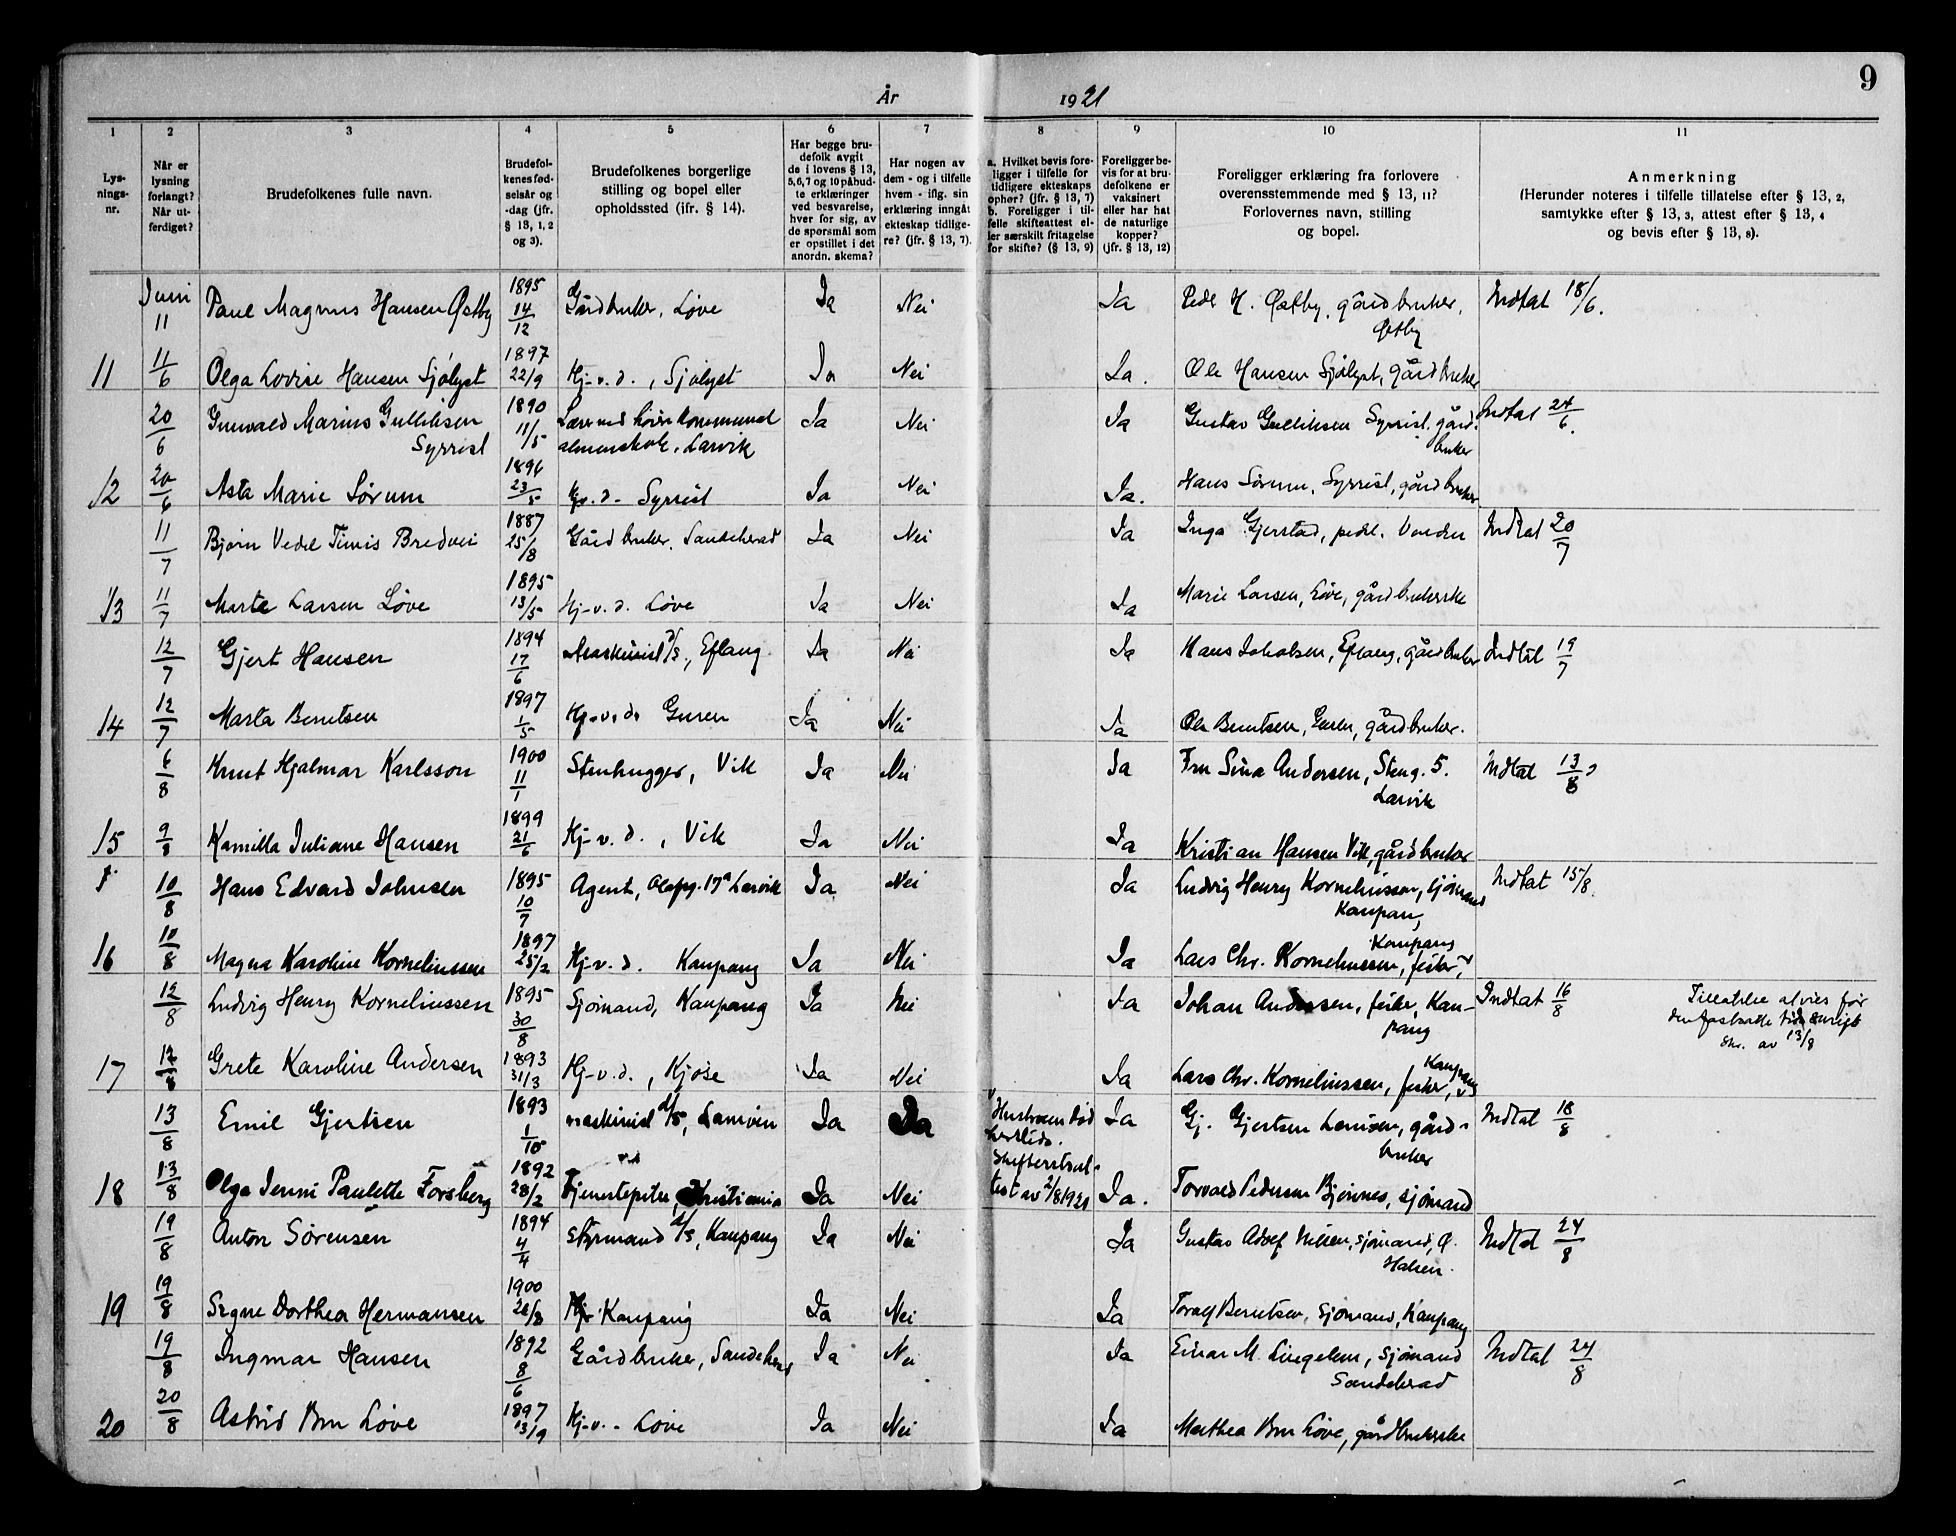 9
År 1921
1 2 3 4 5 6 7 8 9 10 11
Lys-
nings-
nr.
Når er
lysning
forlangt?
Når ut-
ferdiget?
Brudefolkenes fulle navn.
Brudefol-
kenes fød-
selsår og
-dag (jfr.
§ 13, 1, 2
og 3).
Brudefolkenes borgerlige
stilling og bopel eller
opholdssted (ifr. § 14).
Har begge bru-
defolk avgit
de i lovens § 13,
5, 6, 7 og 10 påbud-
te erklæringer
ved besvarelse,
hver for sig, av
de spørsmål som
er opstillet i det
anordn. skema?
Har nogen av
dem - og i tilfelle
hvem - iflg. sin
erklæring inngått
ekteskap tidlige-
re? (jfr. § 13, 7).
a. Hvilket bevis fore-
ligger i tilfelle for
tidligere ekteskaps
ophør? (jfr. § 13, 7)
b. Foreligger i til-
felle skifteattest el-
ler særskilt fritagelse
for skifte? (§ 13, 9)
Foreligger be-
vis for at bru-
defolkene er
vaksinert
eller har hat
de naturlige
kopper?
(jfr. § 13, 12)
Foreligger erklæring fra forlovere
overensstemmende med § 13, 11?
Forlovernes navn, stilling
og bopel.
Anmerkning
(Herunder noteres i tilfelle tillatelse efter § 13, 2,
samtykke efter § 13, 3, attest efter § 13, 4
og bevis efter § 13, 8).
Juni 11 Paul Magnus Hansen Østby 1895 14/12 Gårdbruker, Løve Ja Nei Ja Peder H. Østby, gårdbruker, Indtat 18/6.
Østby
11 11/6 Olga Lovise Hansen Sjølyst 1897 22/9 Hj-v.d., Sjølyst Ja Nei Ja. Ole Hansen Sjølyst, gårdbruker
20/6 Gunvald Marius Gulliksen 1890 11/5 Ja Nei Ja Gustav Gulliksen Syrrist, gård- Indtat 24/6.
Syrrist almenskole, Larvik bruker
12 20/6 Asta Marie Sørum 1896 23/5 Syrrist Ja Nei Ja. Hans Sørum, Syrrist, gårdbruker
11/7 Bjørn Vedel Bredvei 1887 25/8 Gårdbruker, Sandeherad Ja Nei Ja Inga Gjerstad, Indtat 20/7
13 11/7 Marte Larsen Løve 1895 13/5 Hj-v.d. Løve Ja Nei Ja Marie Larsen, Løve, gårdbrukerske
12/7 Gjert Hansen 1894 17/6 Maskinist d/s, Eftang Ja Nei Ja Hans Jakobsen, Eftang, gårdbruker Indtat 19/7
14 12/7 Marta Berntsen 1897 1/5 Hj-v.d. Guren Ja Nei Ja Ole Berntsen, Guren, gårdbruker.
6/8 Knut Hjalmar Karlsson 1900 11/1 Stenhugger, Vik Ja Nei Ja Fru Sina Andersen, Steng. 5. Indtat 13/8
Larvik
15 9/8 Kamilla Juliane Hansen 1899 21/6 Hj-v.d., Vik Ja Nei Ja Kristian Hansen Vik, gårdbruker
10/8 Hans Edvard Johnsen 1895 10/7 Agent, Olafsg. 17a Larvik Ja Nei Ja Ludvig Henry Korneliussen, sjømand Indtat 15/8.
Kaupang,
16 10/8 Magna Karoline Korneliussen 1897 25/2 Hj-v.d. Kaupang Ja Nei Ja Lars Chr. Korneliussen, fisker, Kaupang
12/8 Ludvig Henry Korneliussen 1895 30/8 Sjømand, Kaupang Ja Nei Ja Johan Andersen, fisker, Kau- Indtat 16/8 Tillatelse før
pang 13/8
17 12/8 Grete Karoline Andersen 1893 31/3 Hj-v.d., Kjøse Ja Nei Ja Lars Chr. Korneliussen, fisker, Kaupang
13/8 Emil Gjertsen 1893 1/10 maskinist d/s, Lamøen Ja Ja Hustruen død Ja Gj. Gjertsen Lamøen, gård- Indtat 18/8
bruker
18 13/8 Olga Jenni Paulette Forsberg 1892 28/2 Tjenestepike, Kristiania Ja Nei test av 2/8 1921 Ja. Torvald Pedersen Bjønnes, sjømand
19/8 Anton Sørensen 1894 4/4 Styrmand d/s, Kaupang Ja Nei Ja Gustav Adolf Nilsen, sjømand, Ø. Indtat 24/8
Halsen.
19 19/8 Signe Dorthea Hermansen 1900 26/8 Hj- Kaupang Ja Nei Ja Toralf Berntsen, sjømand, Kaupang
19/8 Ingmar Hansen 1892 8/6 Gårdbruker, Sandeherad Ja Nei Ja Einar M. Lingelem, sjømand Indtat 24/8
Sandeherad
20 20/8 Astrid Bru Løve 1897 13/9 Hj-v.- Løve Ja Nei Ja Mathea Bru Løve, gårdbrukerske